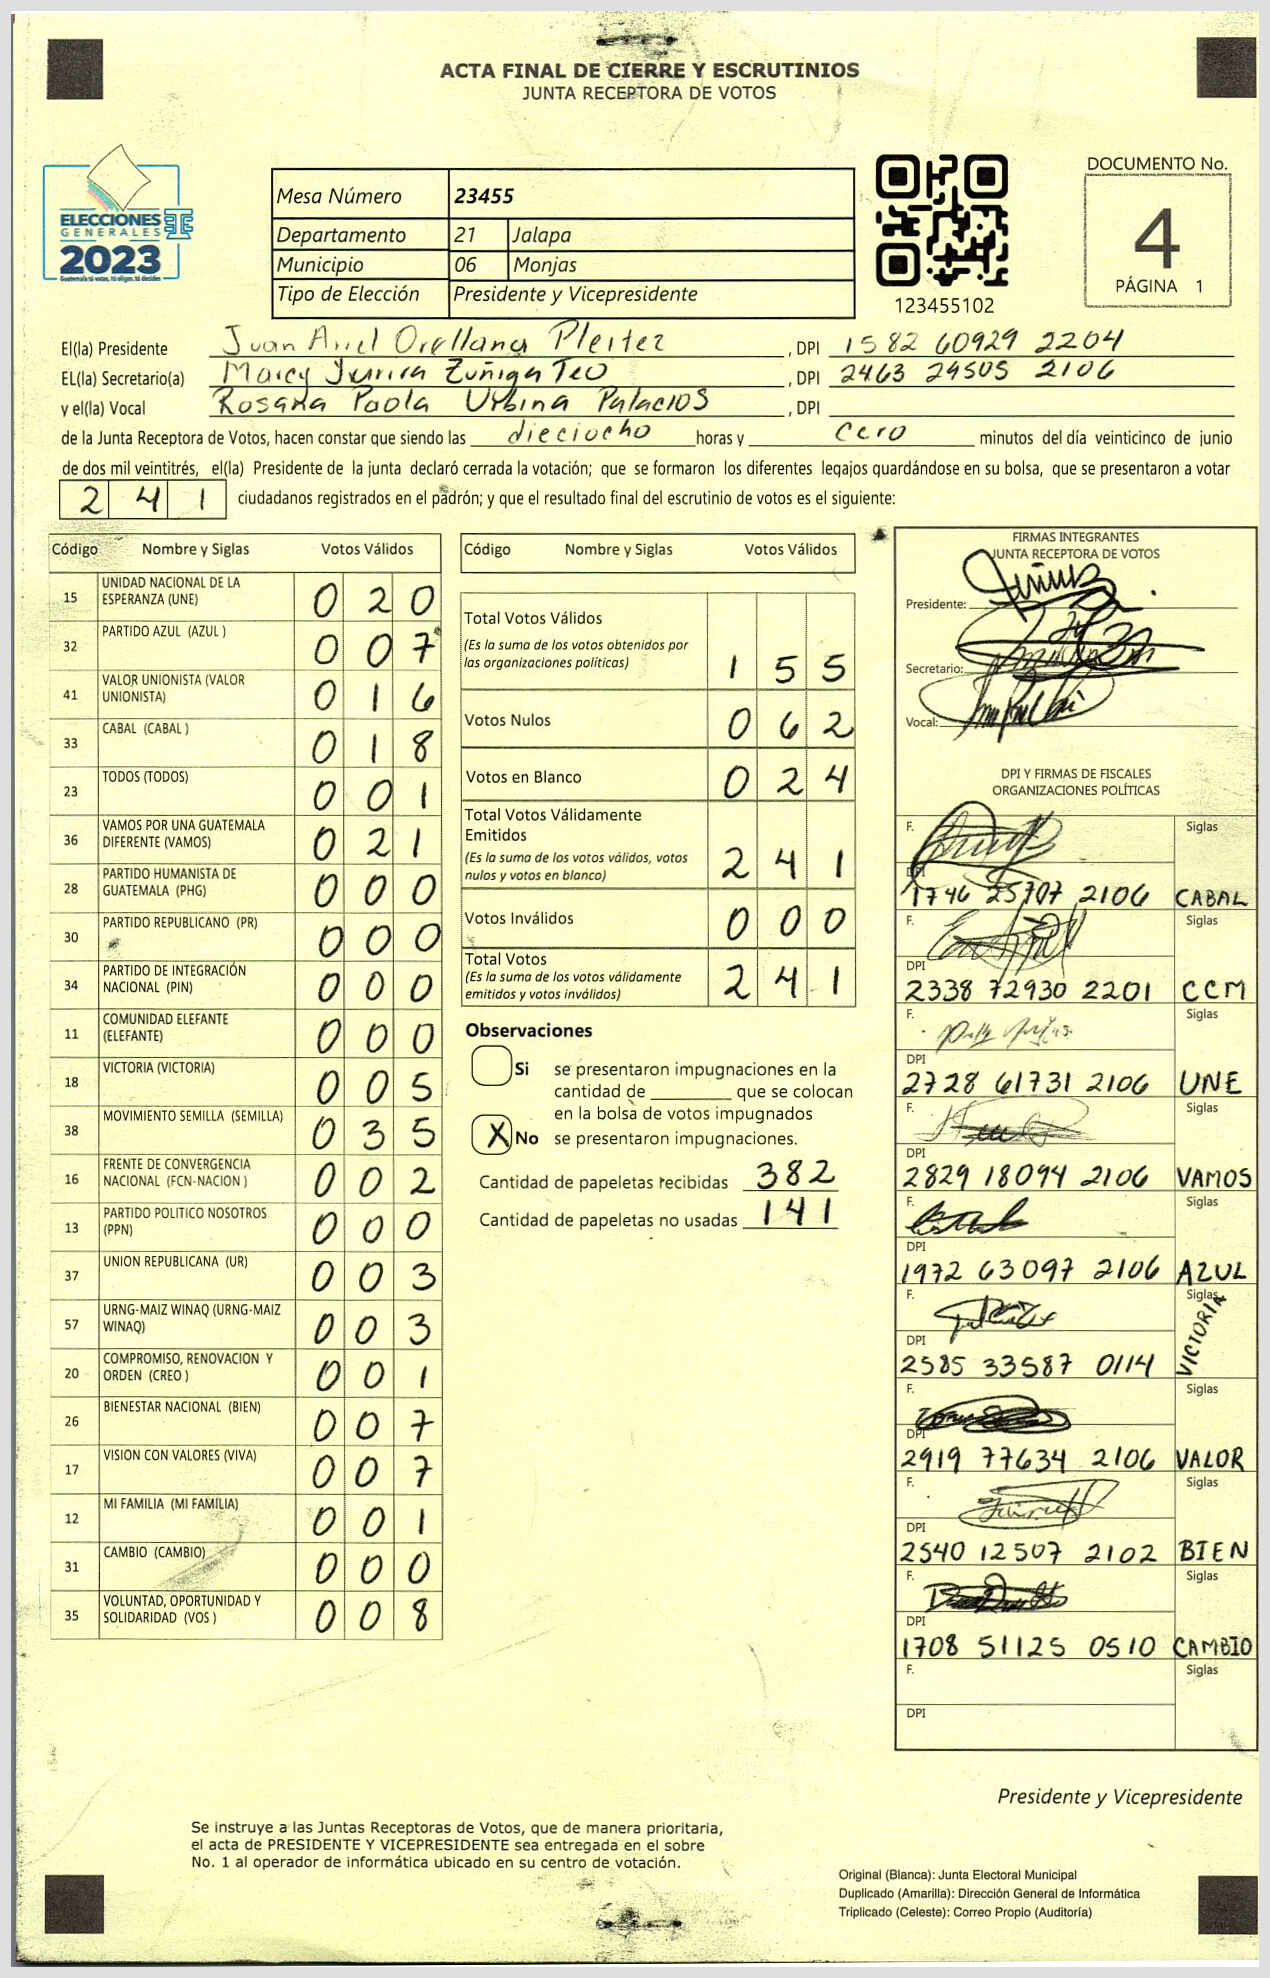 ACTA FINAL DE CIERRE Y ESCRUTINIOS
JUNTA RECEPTORA DE VOTOS
ELECCIONES
GENERALES
2023
Guatemala tú votas, tú eliges, tú decides
Mesa Número 23455
Departamento 21 Jalapa
Municipio 06 Monjas
Tipo de Elección Presidente y Vicepresidente
123455102
DOCUMENTO No.
4
PÁGINA 1
El(la) Presidente Juan Ariel Orellana Pleitez, DPI 1582 60929 2204
EL(la) Secretario(a) Marcy Zuñiga Teo, DPI 2463 29505 2106
y el(la) Vocal Rosana Paola Urbina Palacios, DPI
de la Junta Receptora de Votos, hacen constar que siendo las dieciocho horas y cero minutos del día veinticinco de junio
de dos mil veintitrés, el(la) Presidente de la junta declaró cerrada la votación; que se formaron los diferentes legajos quardándose en su bolsa, que se presentaron a votar
241 ciudadanos registrados en el padrón; y que el resultado final del escrutinio de votos es el siguiente:
Código Nombre y Siglas Votos Válidos
15 UNIDAD NACIONAL DE LA ESPERANZA (UNE) 020
32 PARTIDO AZUL (AZUL ) 007
41 VALOR UNIONISTA (VALOR UNIONISTA) 016
33 CABAL (CABAL ) 018
23 TODOS (TODOS) 001
36 VAMOS POR UNA GUATEMALA DIFERENTE (VAMOS) 021
28 PARTIDO HUMANISTA DE GUATEMALA (PHG) 000
30 PARTIDO REPUBLICANO (PR) 000
34 PARTIDO DE INTEGRACIÓN NACIONAL (PIN) 000
11 COMUNIDAD ELEFANTE (ELEFANTE) 000
18 VICTORIA (VICTORIA) 005
38 MOVIMIENTO SEMILLA (SEMILLA) 035
16 FRENTE DE CONVERGENCIA NACIONAL (FCN-NACION ) 002
13 PARTIDO POLITICO NOSOTROS (PPN) 000
37 UNION REPUBLICANA (UR) 003
57 URNG-MAIZ WINAQ (URNG-MAIZ WINAQ) 003
20 COMPROMISO, RENOVACION Y ORDEN (CREO ) 001
26 BIENESTAR NACIONAL (BIEN) 007
17 VISION CON VALORES (VIVA) 007
12 MI FAMILIA (MI FAMILIA) 001
31 CAMBIO (CAMBIO) 000
35 VOLUNTAD, OPORTUNIDAD Y SOLIDARIDAD (VOS ) 008
Código Nombre y Siglas Votos Válidos
Total Votos Válidos
(Es la suma de los votos obtenidos por
las organizaciones políticas) 155
Votos Nulos 062
Votos en Blanco 024
Total Votos Válidamente
Emitidos
(Es la suma de los votos válidos, votos
nulos y votos en blanco) 241
Votos Inválidos 000
Total Votos
(Es la suma de los votos válidamente
emitidos y votos inválidos) 241
Observaciones
Si se presentaron impugnaciones en la
cantidad de ________ que se colocan
en la bolsa de votos impugnados
X No se presentaron impugnaciones.
Cantidad de papeletas recibidas 382
Cantidad de papeletas no usadas 141
FIRMAS INTEGRANTES
JUNTA RECEPTORA DE VOTOS
Presidente:
Secretario:
Vocal:
DPI Y FIRMAS DE FISCALES
ORGANIZACIONES POLÍTICAS
F. Siglas
DPI
1746 25707 2106 CABAL
F. Siglas
DPI
2338 72930 2201 CCM
F. Siglas
DPI
2728 61731 2106 UNE
F. Siglas
DPI
2829 18094 2106 VAMOS
F. Siglas
DPI
1972 63097 2106 AZUL
F. Siglas
DPI
2585 33587 0114 VICTORIA
F. Siglas
DPI
2919 77634 2106 VALOR
F. Siglas
DPI
2540 12507 2102 BIEN
F. Siglas
DPI
1708 51125 0510 CAMBIO
F. Siglas
DPI
Presidente y Vicepresidente
Se instruye a las Juntas Receptoras de Votos, que de manera prioritaria,
el acta de PRESIDENTE Y VICEPRESIDENTE sea entregada en el sobre
No. 1 al operador de informática ubicado en su centro de votación.
Original (Blanca): Junta Electoral Municipal
Duplicado (Amarilla): Dirección General de Informática
Triplicado (Celeste): Correo Propio (Auditoría)